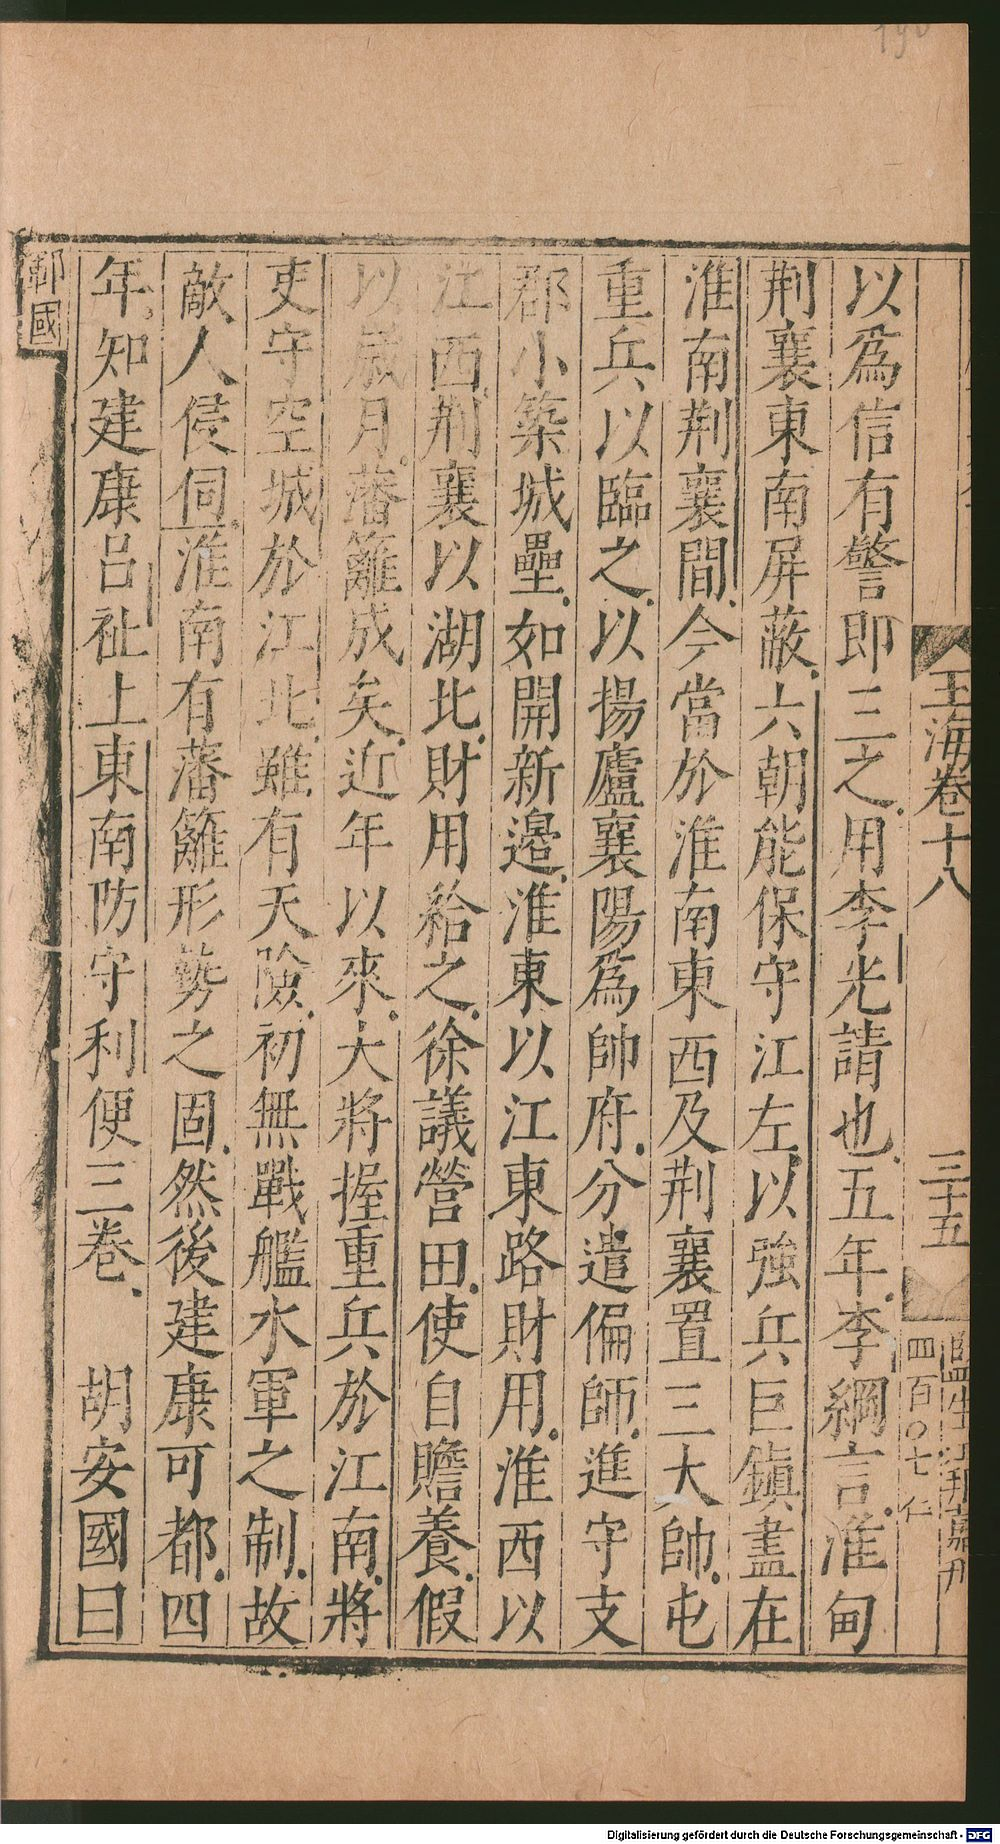 玉海卷十八
三十五
監生
四百〇七
以爲信有警即三之用李光請也五年李綱言淮甸
荆襄東南屏蔽六朝能保守江左以強兵巨鎭盡在
淮南荆襄間今當於淮南東西及荆襄置三大帥屯
重兵以臨之以揚廬襄陽爲帥府分遣偏師進守支
郡小築城壘如開新邉淮東以江東路財用淮西以
江西荆襄以湖北財用給之徐議營田使自贍養假
以歲月藩籬成矣近年以來大將握重兵於江南將
吏守空城於江北雖有天險初無戰艦水軍之制故
敵人侵伺淮南有藩籬形勢之固然後建康可都四
年知建康吕祉上東南防守利便三巻 胡安國曰
郡國
Digitalisierung gefördert durch die Deutsche Forschungsgemeinschaft - DFG